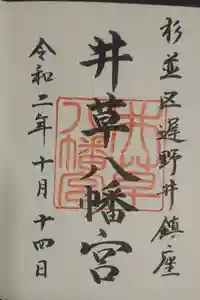 杉並区遅野井鎮座
井草八幡宮
令和二年十月十四日
井草八幡宮